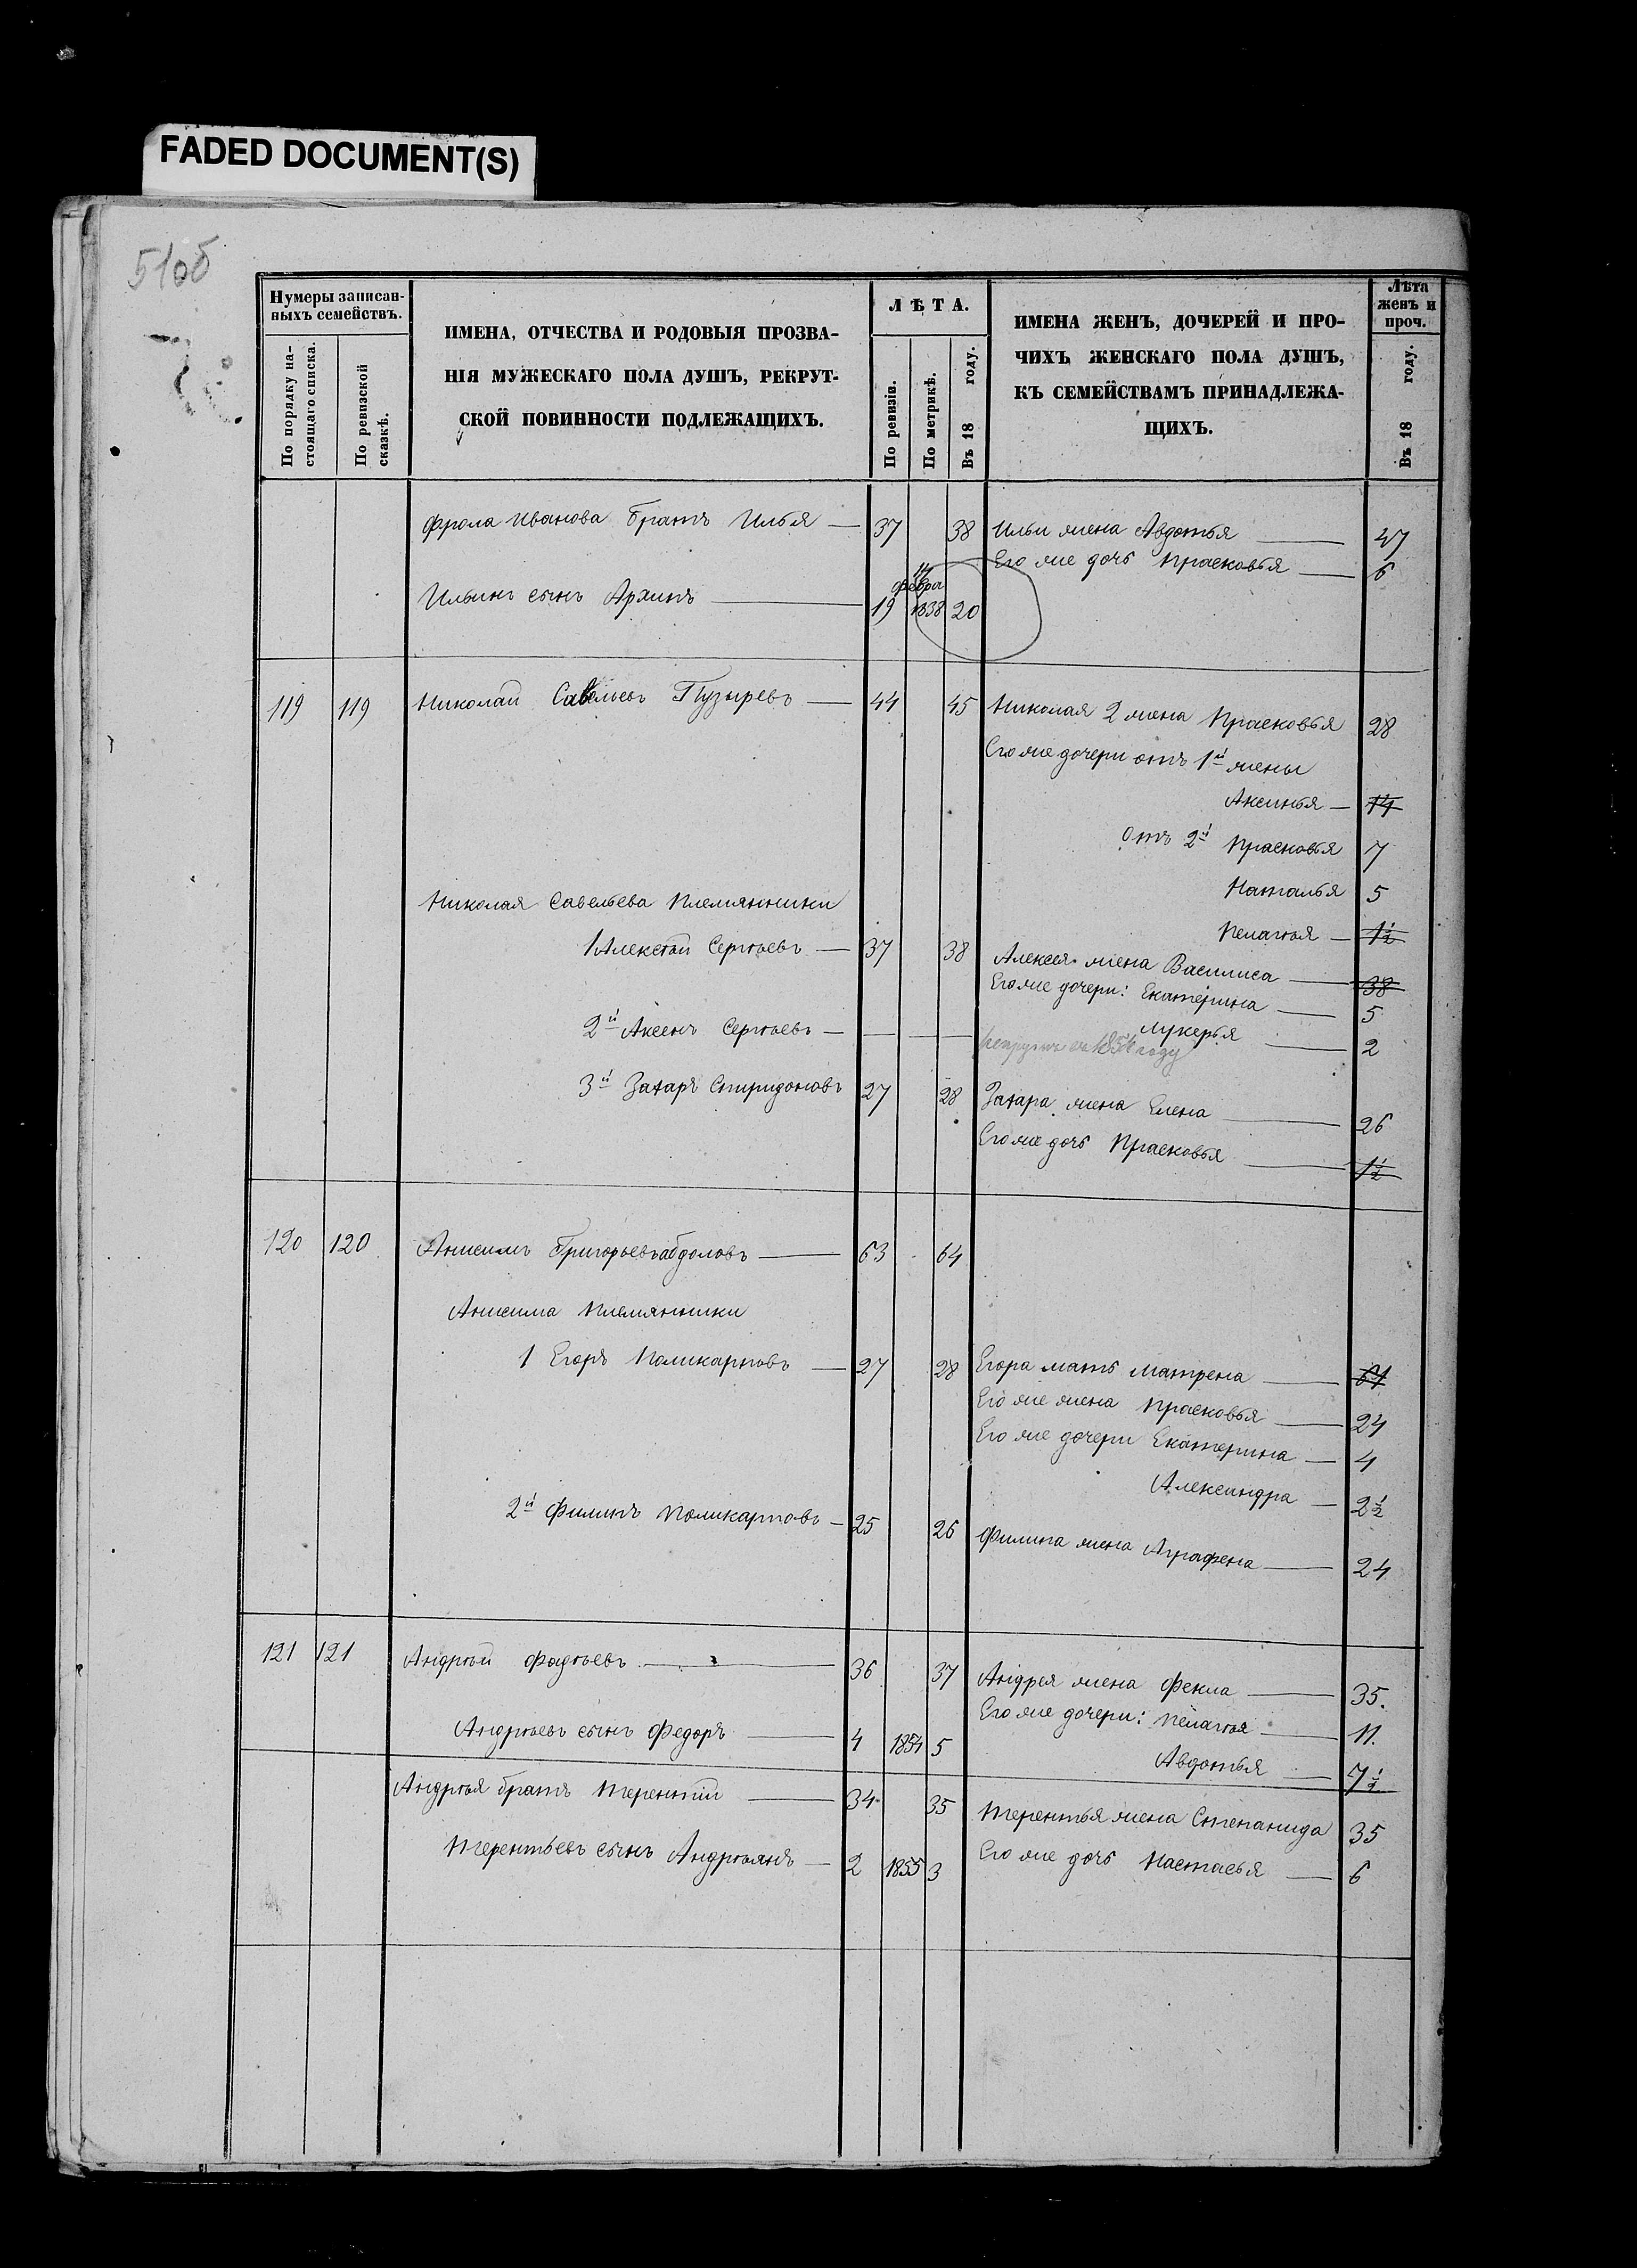 FADED DOCUMENT(S)
51об
Нумеры записан-
ныхъ семействъ.
По порядку на-
стоящаго списка.
По ревизской
сказкѣ.
ИМЕНА, ОТЧЕСТВА И РОДОВЫЯ ПРОЗВА-
НІЯ МУЖЕСКАГО ПОЛА ДУШЪ, РЕКРУТ-
СКОЙ ПОВИННОСТИ ПОДЛЕЖАЩИХЪ.
ЛѢТА.
По ревизіи.
По метрикѣ.
Въ 18 году.
ИМЕНА ЖЕНЪ, ДОЧЕРЕЙ И ПРО-
ЧИХЪ ЖЕНСКАГО ПОЛА ДУШЪ,
КЪ СЕМЕЙСТВАМЪ ПРИНАДЛЕЖА-
ЩИХЪ.
Лѣта
женъ и
проч.
Въ 18 году.
Фрола Иванова братъ Илья — 37 38 Ильи жена Авдотья — 47
Его же дочь Прасковья — 6
Ильинъ сынъ Архипъ — 19 14 февра 1838 20
119 119 Николай Савельевъ Пузыревъ — 44 45 Николая 2 жена Прасковья 28
Его же дочери отъ 1й жены
Аксинья — 14
отъ 2й Прасковья 7
Наталья 5
Николая Савельева племянники
Пелагѣя — 1½
1 Алексѣй Сергѣевъ — 37 38 Алексея жена Василиса — 38
Его же дочери: Екатерина — 5
Лукерья — 2
2й Аксенъ Сергѣевъ — — — рекрутъ въ 1854 году
3й Захаръ Спиридоновъ 27 28 Захара жена Елена — 26
Его же дочь Прасковья — 1½
120 120 Анисимъ Григорьевъ Абдоловъ — 63 64
Анисима племянники
1 Егоръ Поликарповъ — 27 28 Егора мать Матрена — 61
Его же жена Прасковья — 24
Его же дочери Екатерина — 4
Александра — 2½
2й Филипъ Поликарповъ — 25 26 Филипа жена Аграфена — 24
121 121 Андрѣй Фадѣевъ — 36 37 Андрея жена Фекла — 35.
Его же дочери: Пелагѣя — 11.
Андрѣевъ сынъ Федоръ — 4 1854 5
Авдотья — 7½
Андрѣя братъ Терентій — 34 35 Терентья жена Степанида 35
Терентьевъ сынъ Андрѣянъ — 2 1855 3 Его же дочь Настасья — 6